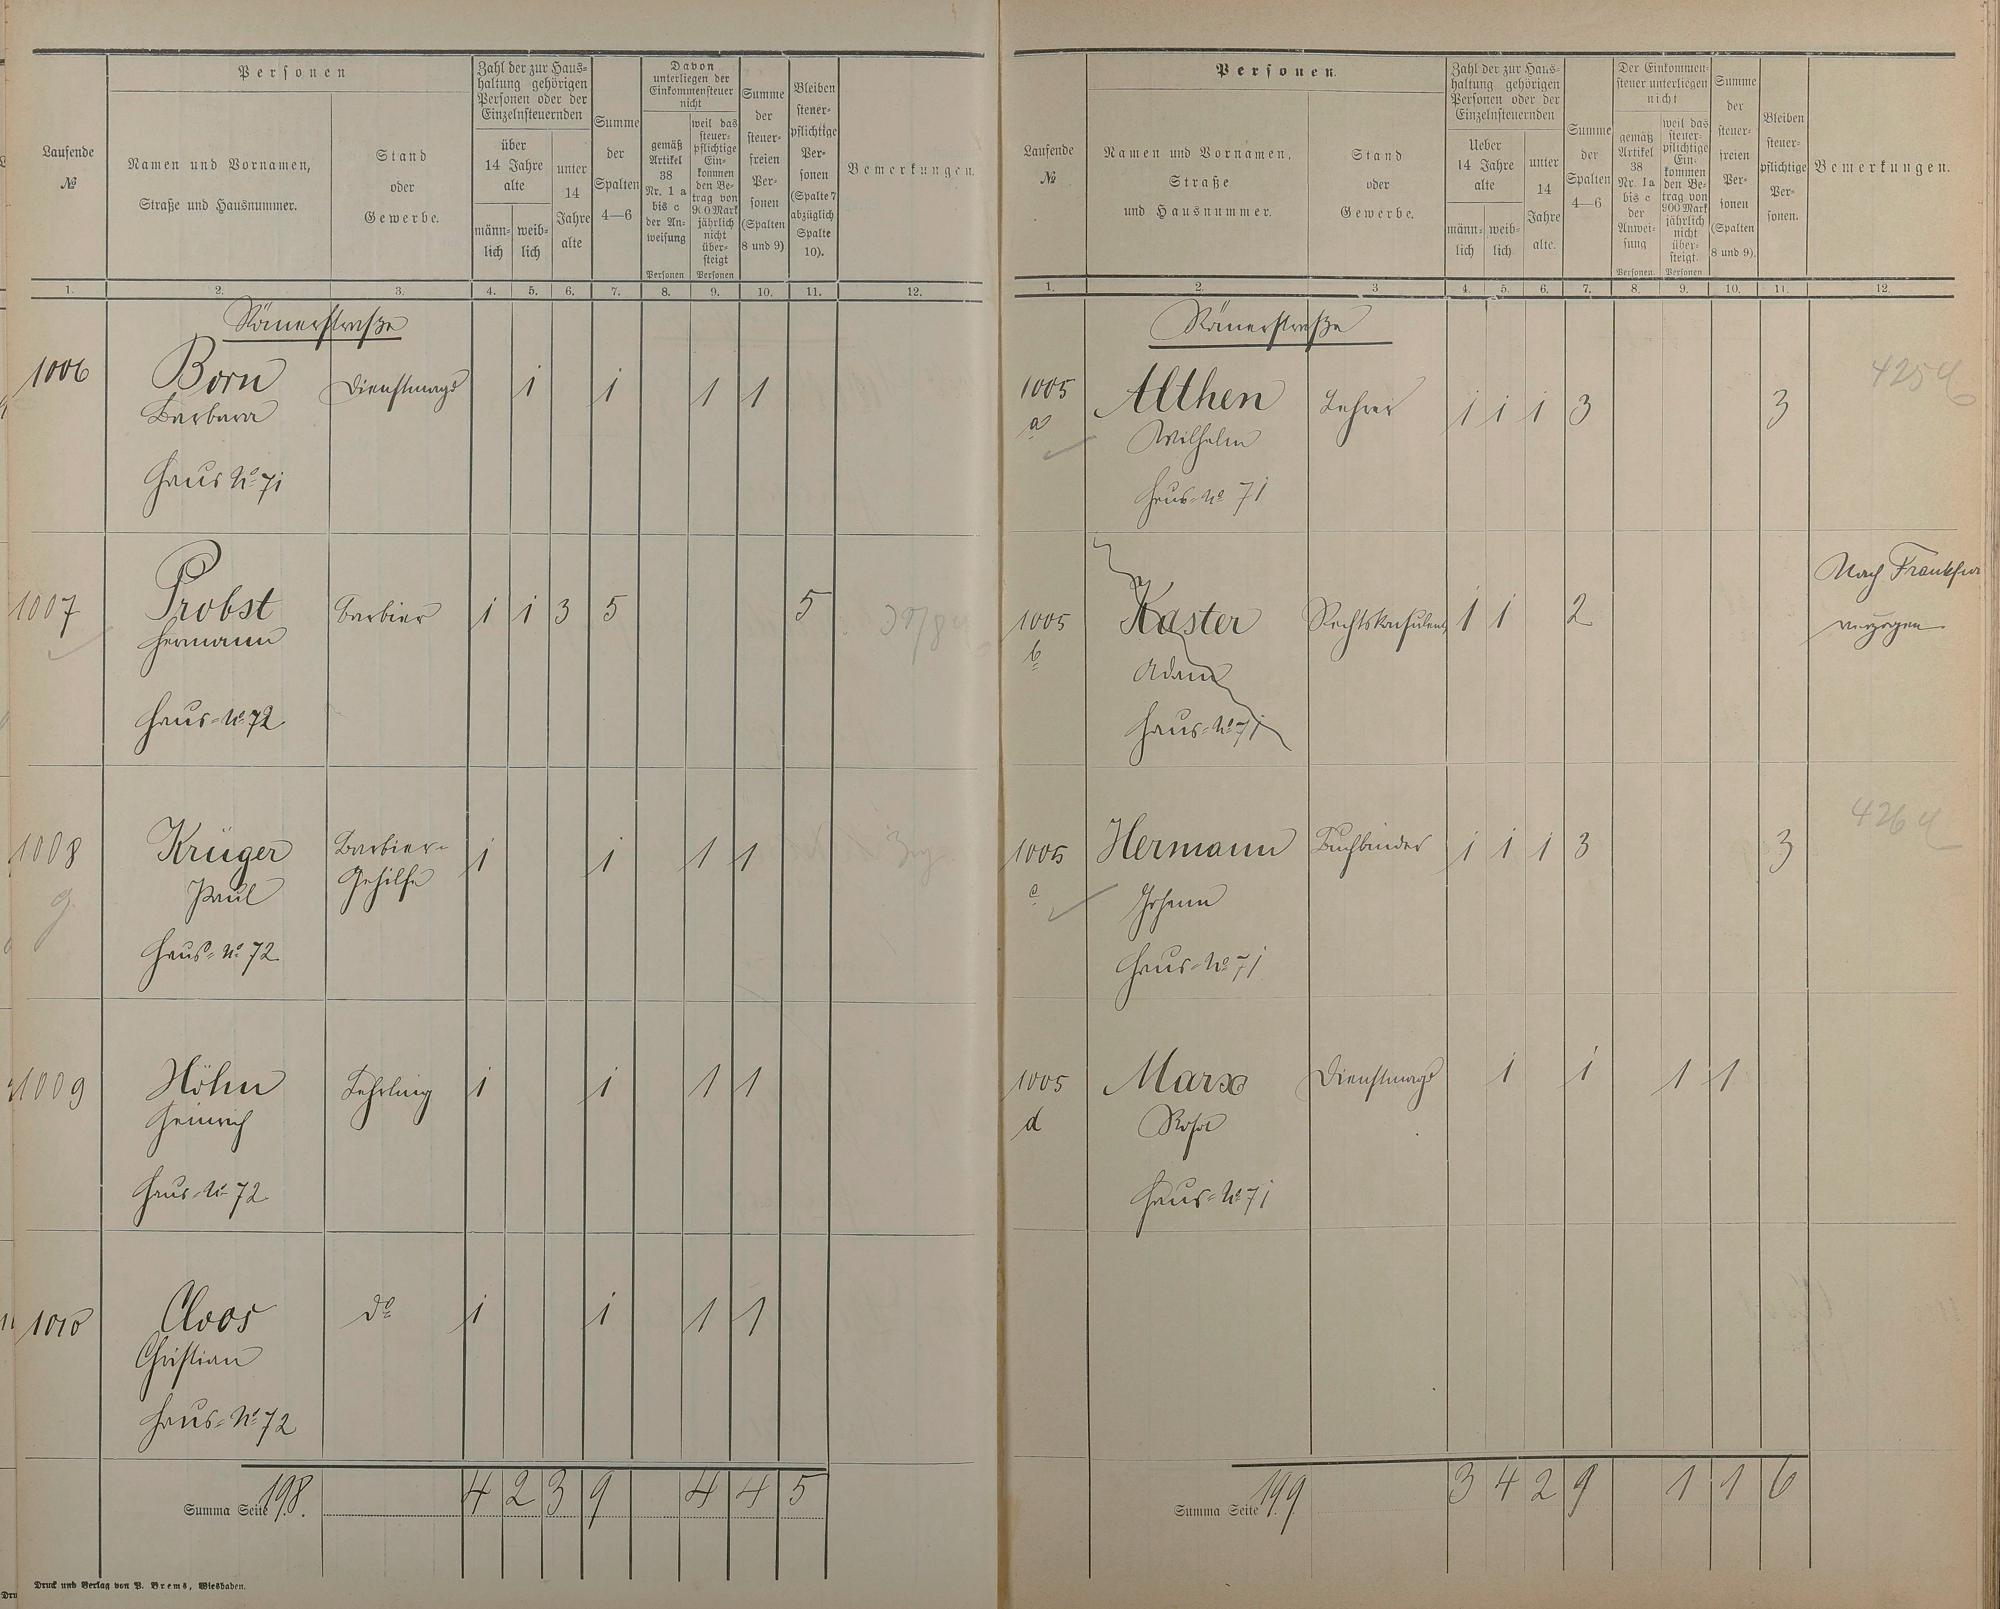 Laufende
№
Personen
Namen und Vornamen,
Straße und Hausnummer.
Stand
oder
Gewerbe.
Zahl der zur Haus-
haltung gehörigen
Personen oder der
Einzelnsteuernden
über
14 Jahre
alte
männ-
lich
weib-
lich
unter
14
Jahre
alte
Summe
der
Spalten
4—6
Davon
unterliegen der
Einkommensteuer
nicht
gemäß
Artikel
38
Nr. 1 a
bis c
der An-
weisung
Personen
weil das
steuer-
pflichtige
Ein-
kommen
den Be-
trag von
900 Mark
jährlich
nicht
über-
steigt
Personen
Summe
der
steuer-
freien
Per-
sonen
(Spalten
8 und 9)
Bleiben
steuer-
pflichtige
Per-
sonen
(Spalte 7
abzüglich
Spalte
10).
Bemerkungen.
1. 2. 3. 4. 5. 6. 7. 8. 9. 10. 11. 12.
Römerstraße
1006 Born Dienstmagd 1 1 1 1
Barbara
Haus No 71
1007 Probst Barbier 1 1 3 5 5
Hermann
Haus-No 72
1008 Krüger Barbier- 1 1 1 1
g. Paul Gehilfe
Haus-No 72
1009 Höhn Lehrling 1 1 1 1
Heinrich
Haus-No 72
1010 Cloos do 1 1 1 1
Christian
Haus-No 72
Summa Seite 198. 4 2 3 9 4 4 5
Druck und Verlag von P. Brems, Wiesbaden.
Laufende
№
Personen.
Namen und Vornamen,
Straße
und Hausnummer.
Stand
oder
Gewerbe.
Zahl der zur Haus-
haltung gehörigen
Personen oder der
Einzelnsteuernden
Ueber
14 Jahre
alte
männ-
lich
weib-
lich
unter
14
Jahre
alte.
Summe
der
Spalten
4—6
Der Einkommen-
steuer unterliegen
nicht
gemäß
Artikel
38
Nr. 1a
bis c
der
Anwei-
sung
Personen.
weil das
steuer-
pflichtige
Ein-
kommen
den Be-
trag von
900 Mark
jährlich
nicht
über-
steigt.
Personen
Summe
der
steuer-
freien
Per-
sonen
(Spalten
8 und 9).
Bleiben
steuer-
pflichtige
Per-
sonen.
Bemerkungen.
1. 2. 3 4. 5. 6. 7. 8. 9. 10. 11. 12.
Römerstraße
1005 Althen Lehrer 1 1 1 3 3
a Wilhelm
Haus-No 71
Nach Frankfur
1005 Kaster Rechtskonsulent 1 1 2 verzogen
b Adam
Haus-No 71
1005 Hermann Buchbinder 1 1 1 3 3
c Johann
Haus-No 71
1005 Marx Dienstmagd 1 1 1 1
d Rosa
Haus-No 71
Summa Seite 199 3 4 2 9 1 1 6